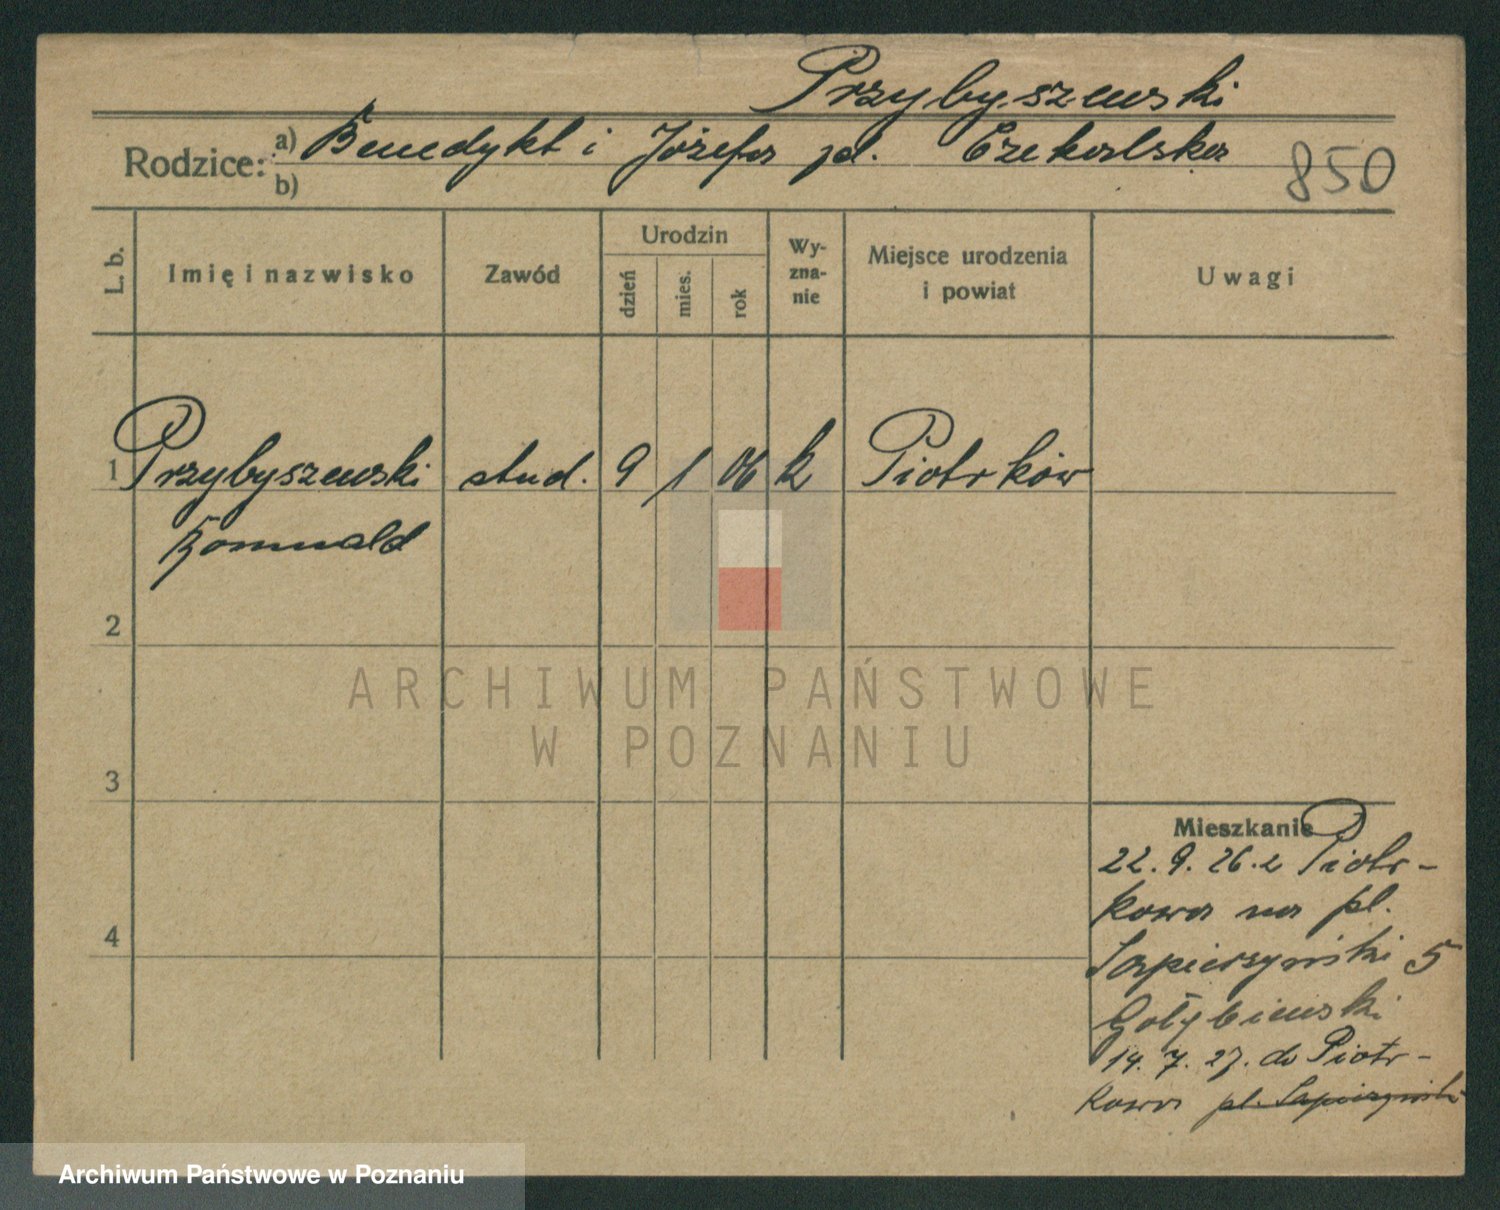 Przybyszewski
Rodzice: a) Benedykt i Józefa pd. Czekalska
b)
850
L. b.
Imię i nazwisko
Zawód
Urodzin
dzień
mies.
rok
Wy-
zna-
nie
Miejsce urodzenia
i powiat
Uwagi
1 Przybyszewski stud. 9 1 06 k Piotrków
Romuald
2
3
4
Mieszkanie
22. 9. 26. z Piotr-
kowa na pl.
Sapierzyński 5
Gołębiewski
14. 7. 27. do Piotr-
kowa pl. Sapierzyński
ARCHIWUM PAŃSTWOWE
W POZNANIU
Archiwum Państwowe w Poznaniu